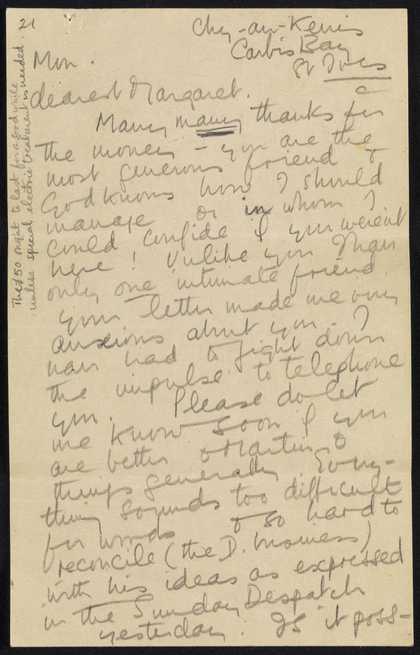 21
Chy-an-Kerris
Carbis Bay
St Ives
Mon.
dearest Margaret.
Many many thanks for
the money - you are the
most generous friend &
God knows how I should
manage or in whom I
could confide if you weren't
here! Unlike you I have
only one intimate friend
your letter made me very
anxious about you. I
had to fight down
the impulse to telephone
you. Please do let
me know soon if you
are better & Martin &
things generally. Every-
thing sounds too difficult
for words & so hard to
reconcile (the D. business)
with his ideas as expressed
in the Sunday Despatch
yesterday. Is it poss-
The £50 ought to last for a good while
unless special electric treatment is needed